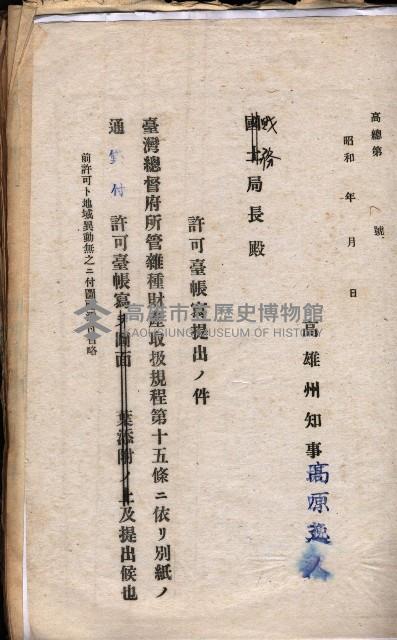 高總第 號
昭和 年 月 日
高雄州知事 高原逸人
國土局長殿
財務
許可臺帳寫提出ノ件
臺灣總督府所管雜種財產取扱規程第十五條ニ依リ別紙ノ
通 許可臺帳寫 圖面 葉添附ノ上及提出候也
付
前許可ト地域異動無之ニ付圖 省略
高雄市立歷史博物館
KAOHSIUNG MUSEUM OF HISTORY